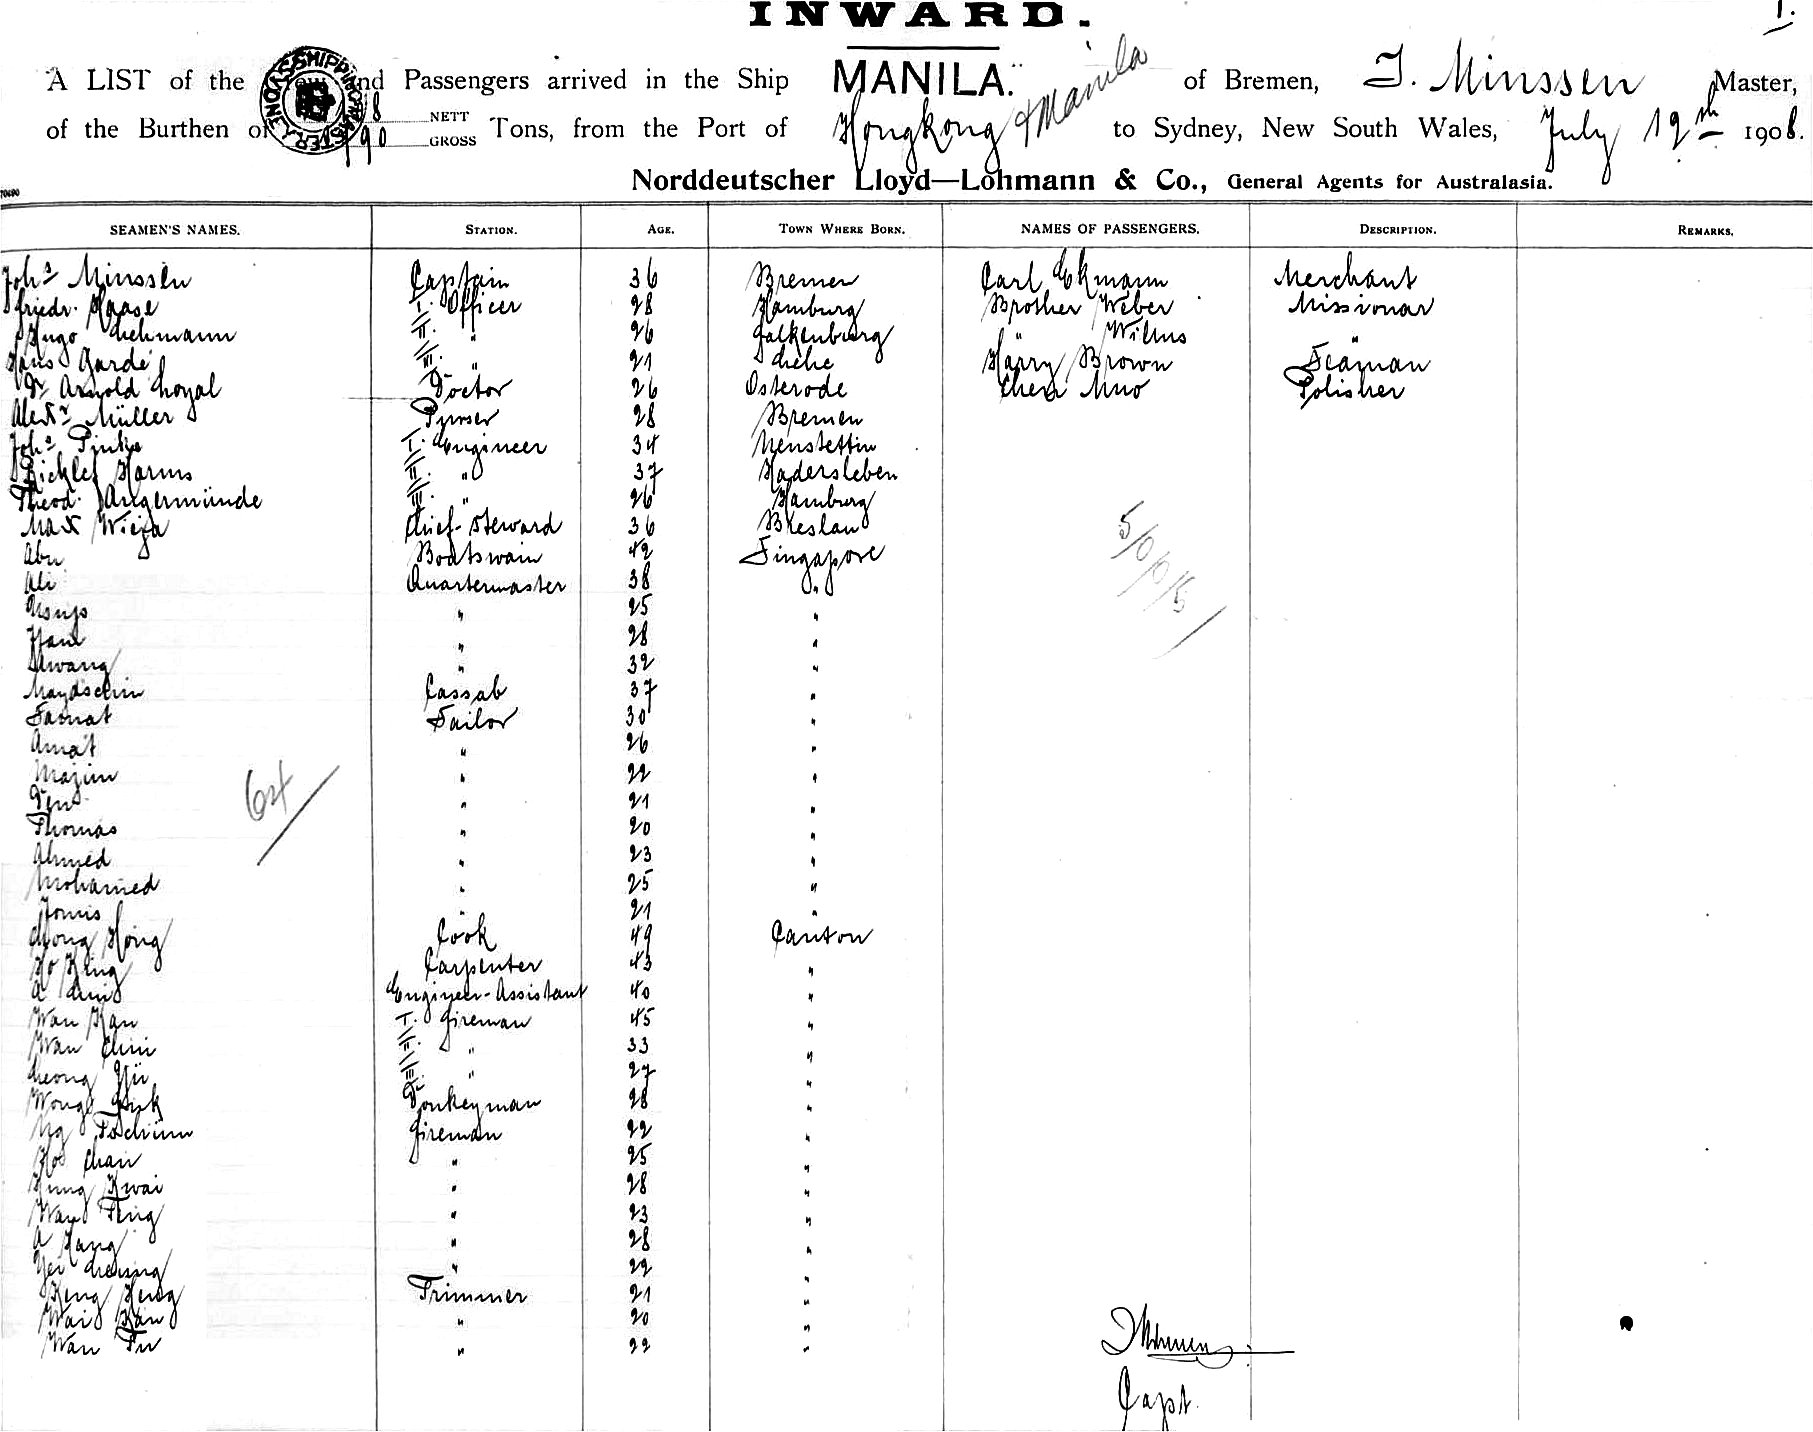 INWARD.
1.
A LIST of the Crew and Passengers arrived in the Ship MANILA. of Bremen, J. Minssen Master,
of the Burthen of NETT GROSS Tons, from the Port of Hongkong & Manila to Sydney, New South Wales, July 19th 1908.
Norddeutscher Lloyd—Lohmann & Co., General Agents for Australasia.
SEAMEN'S NAMES. STATION. AGE. TOWN WHERE BORN. NAMES OF PASSENGERS. DESCRIPTION. REMARKS.
Johs Minssen Captain 36 Bremen Carl Ekmann Merchant
Friedr. Haase I. Officer 28 Hamburg Brother Weber Missionar
Hugo Lehmann II. " 26 Falkenburg " Wilms "
Hans Garde III. " 21 Lehe Harry Brown Seaman
Dr Arnold Loyal Doctor 26 Osterode Chen Muo Polisher
Alexr Müller Purser 28 Bremen
Johs I. Engineer 34 Neustettin
Harms II. " 37 Hadersleben
Theod. Angermünde III. " 26 Hamburg
Max Chief-Steward 36 Breslau
Abu Boatswain 42 Singapore
Ali Quartermaster 38 "
Usup " 25 "
" 28 "
Awang " 32 "
Cassab 37 "
Sailor 30 "
Amat " 26 "
Majim " 22 "
" 21 "
Thomas " 20 "
Ahmed " 23 "
Mohamed " 25 "
" 21 "
Chong Hong Cook 49 Canton
Ho King Carpenter 43 "
A Engineer-Assistant 40 "
Wan Kan I. Fireman 45 "
Wan II. " 33 "
Leong Yü III. " 27 "
Wong Donkeyman 28 "
Ng Fireman 22 "
Ho Chan " 25 "
Kung Kwai " 28 "
Wan " 23 "
A Kang " 28 "
" 22 "
Trimmer 21 "
Wai Kan " 20 "
Wan Fu " 22 "
64
5/0/0/5/
JMinssen
Capt.